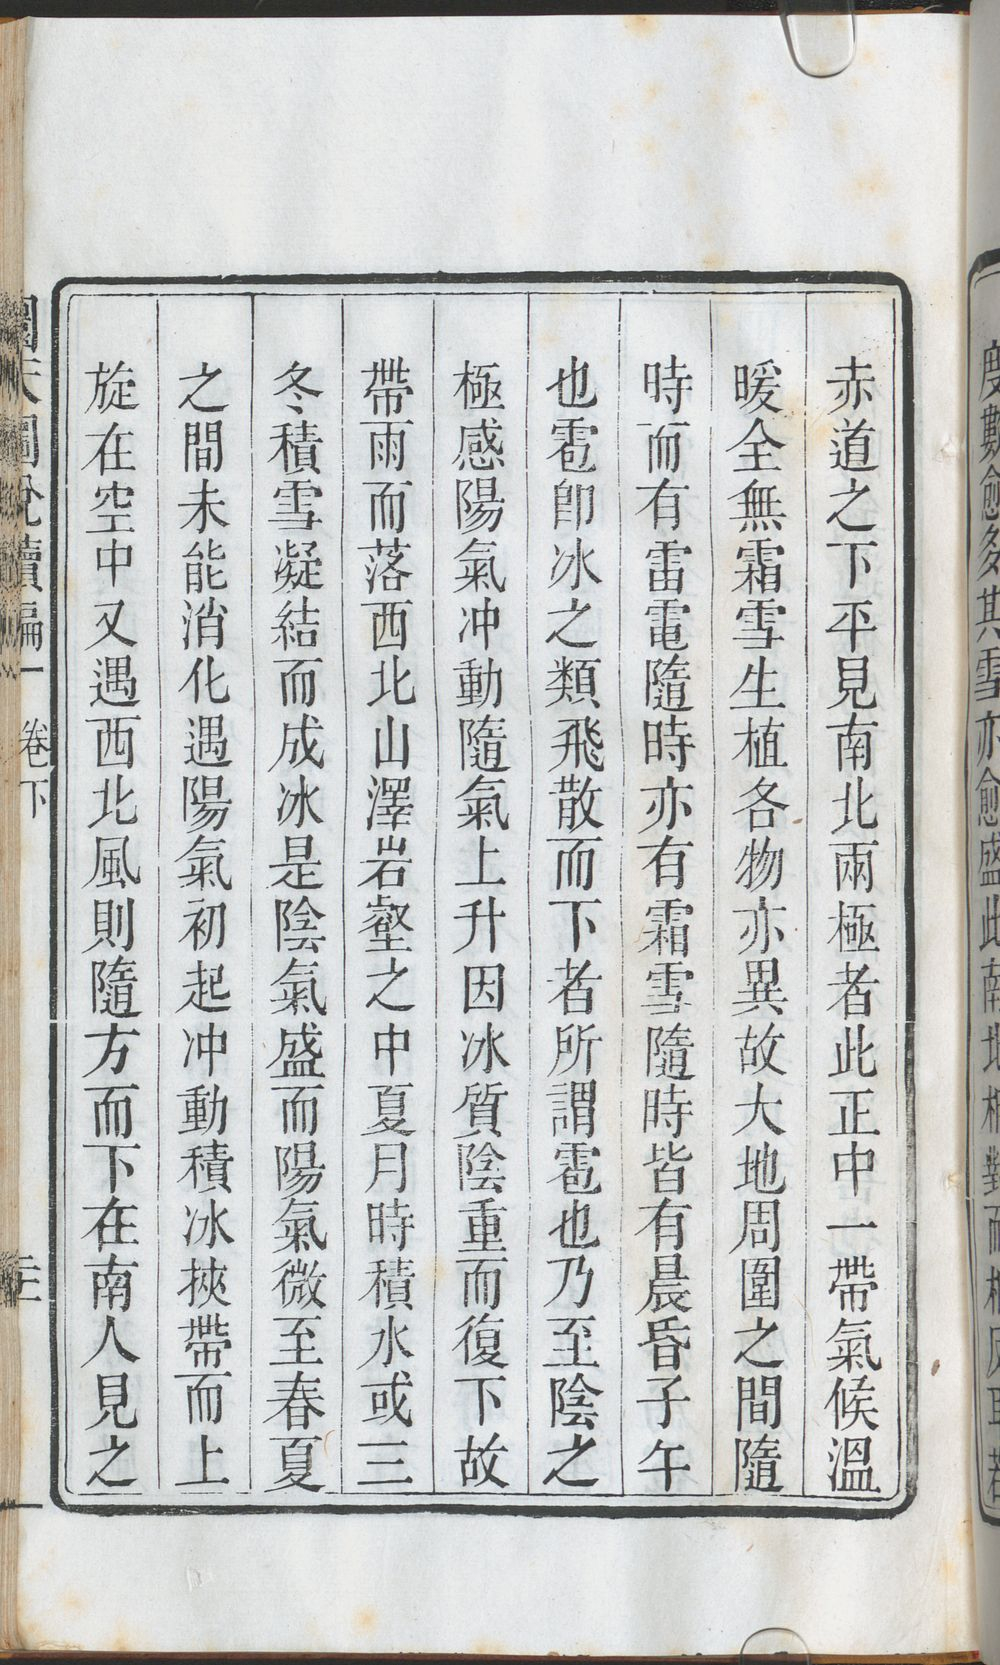 赤道之下平見南北兩極者此正中一帶氣候溫
暖全無霜雪生植各物亦異故大地周圍之間隨
時而有雷電隨時亦有霜雪隨時皆有晨昏子午
也雹卽冰之類飛散而下者所謂雹也乃至陰之
極感陽氣冲動隨氣上升因冰質陰重而復下故
帶雨而落西北山澤岩壑之中夏月時積水或三
冬積雪凝結而成冰是陰氣盛而陽氣微至春夏
之間未能消化遇陽氣初起冲動積冰挾帶而上
旋在空中又遇西北風則隨方而下在南人見之
圜天圖說續編 卷下
度數愈多其雪亦愈盛此南北相對而相反耳若